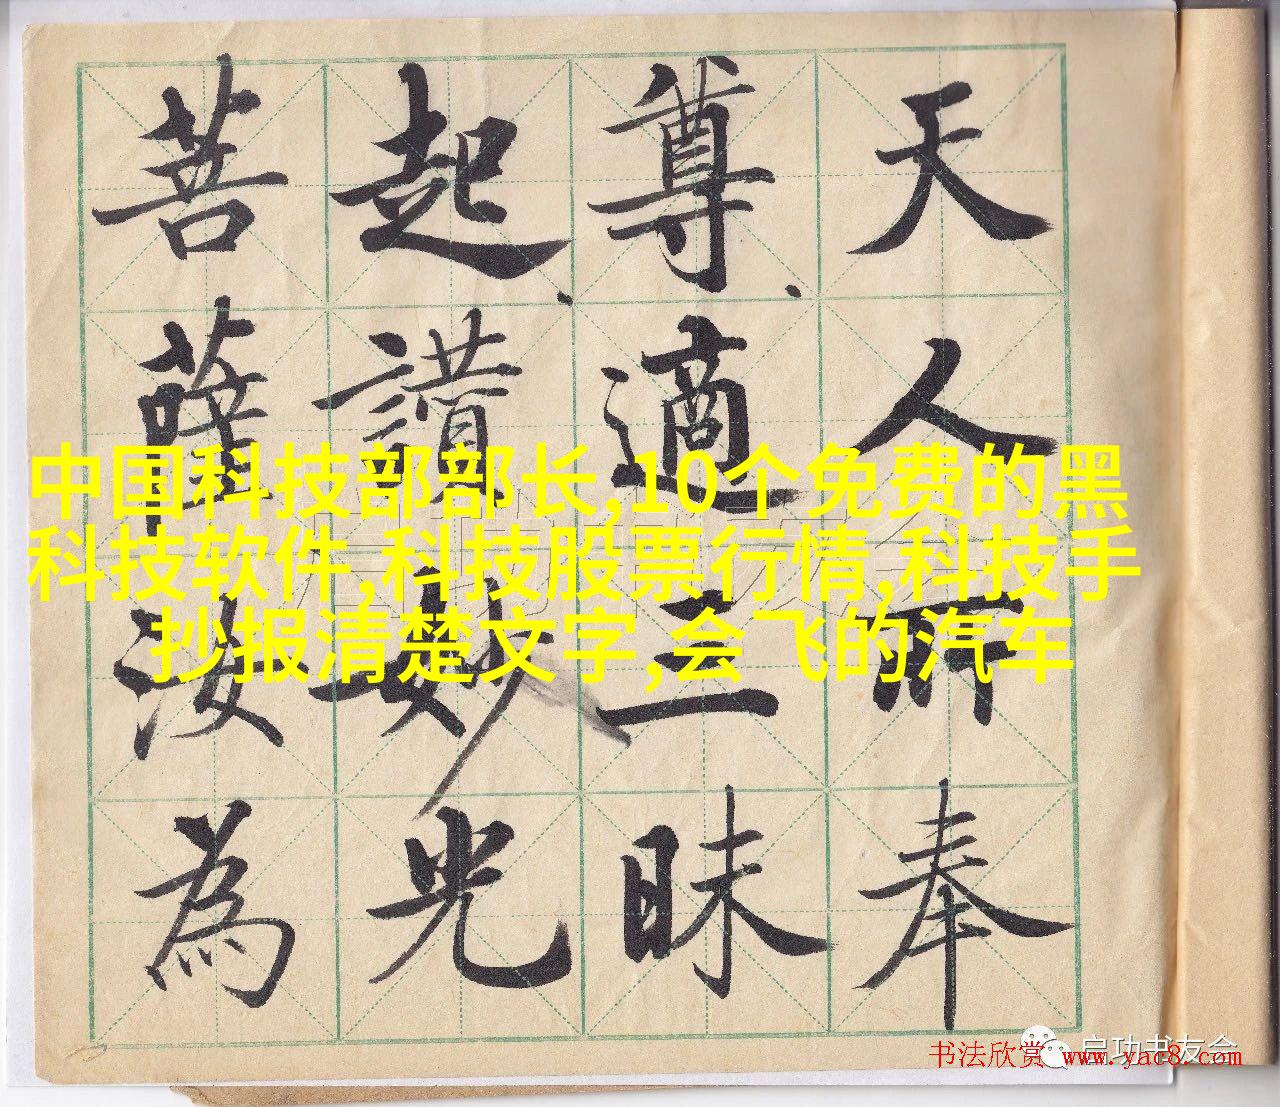 天人所奉
尊適三昧
起讃妙光
菩薩汝為
中国科技部部长,10个免费的黑
科技软件,科技股票行情,科技手
抄报清楚文字,会飞的汽车
启功书友会
书法欣赏 www.yac8.com